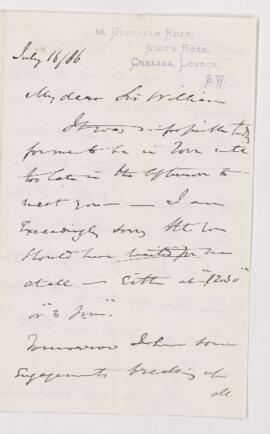 10, Uverdale Road,
King's Road,
Chelsea, London,
S.W.
July 16/86
My dear Sir William
It was impossible to day
for me to be in Town until
too late in the afternoon to
meet you — I am
Exceedingly sorry that you
should have waited for me
at all — Either at "12.30"
or "3 p.m."
Tomorrow I have some
Engagements breaking up
all